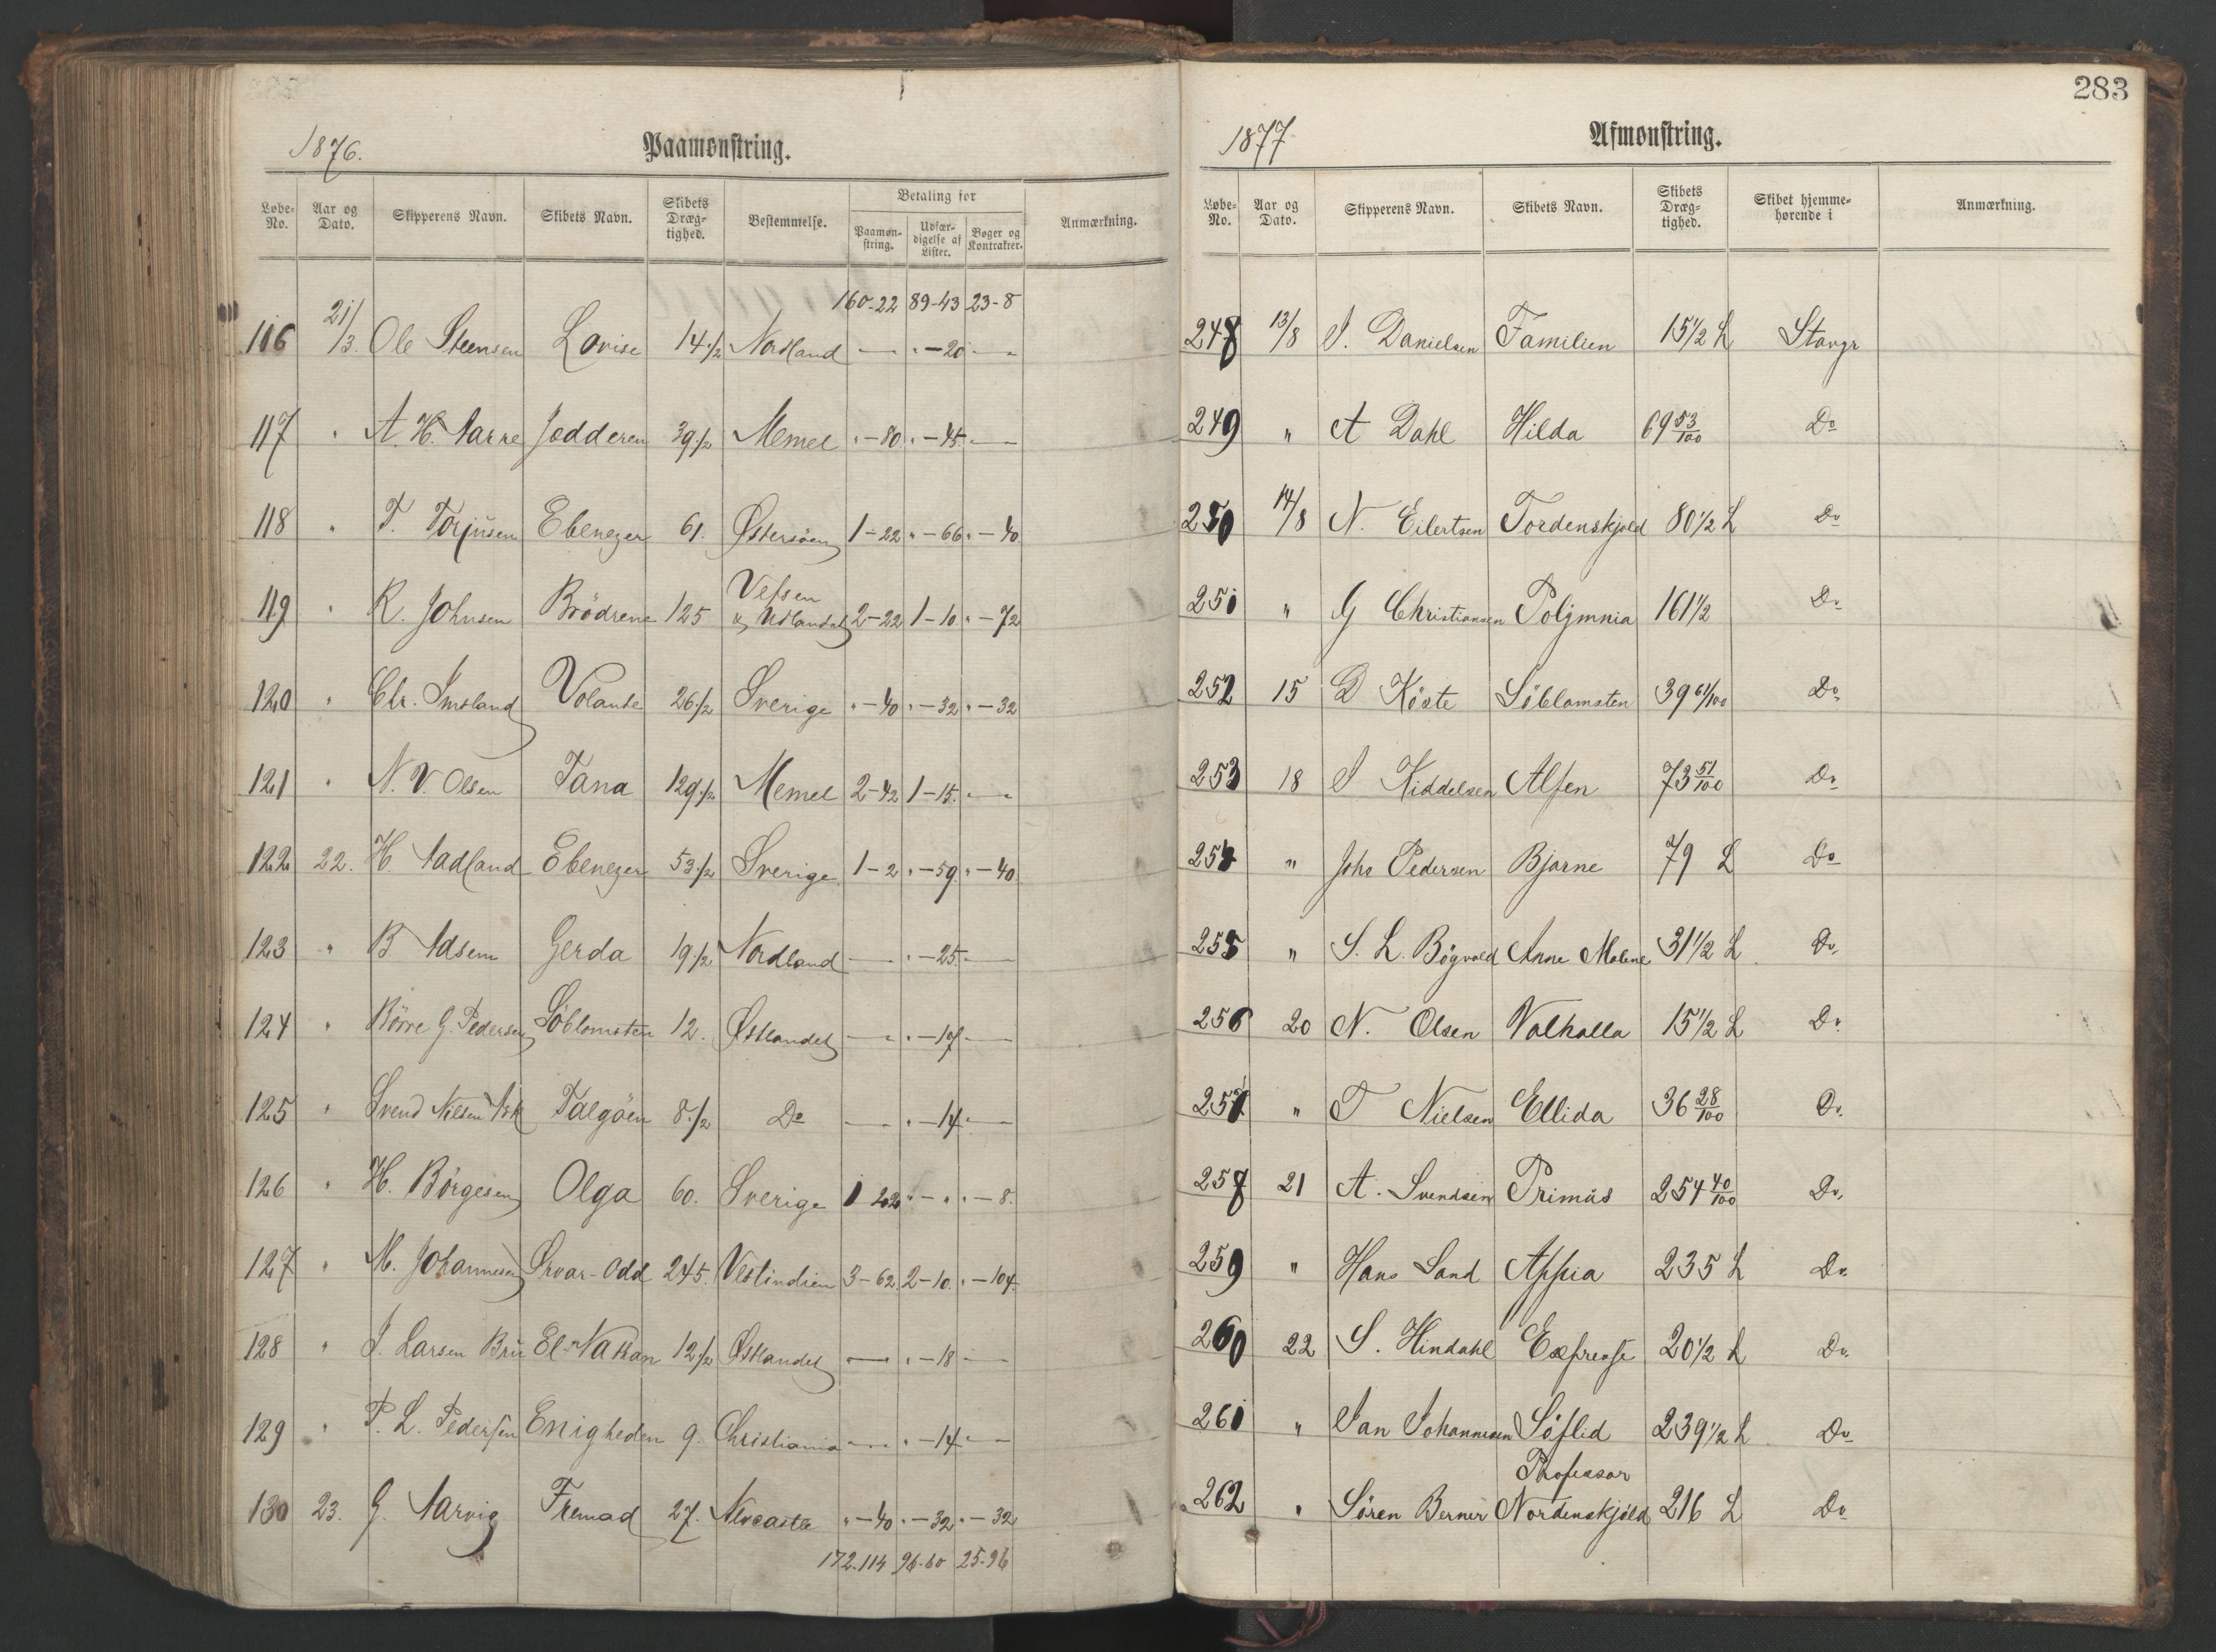 1876.
Paamønstring.
Løbe-No. Aar og Dato. Skipperens Navn. Skibets Navn. Skibets Dræg-tighed. Bestemmelse. Betaling for Paamøn-string. Udfær-digelse af Lister. Bøger og Kontrakter. Anmærkning.
160-22 89-43 23-8
116 21/3. Ole Steensen Lovise 14 1/2 Nordland — " - 20 —
117 " A. H. Aarre Jædderen 39 1/2 Memel " - 80 " - 45 —
118 " T. Torjusen Ebenezer 61. Østersöen 1 - 22 " - 66 " - 40
119 " R. Johnsen Brödrene 125 Vefsen & Udlandet 2 - 22 1 - 10 " - 72
120 " Chr. Imsland Volante 26 1/2 Sverige " - 40 " - 32 " - 32
121 " N. V. Olsen Tana 129 1/2 Memel 2 - 42 1 - 15 —
122 22. H. Aadland Ebenezer 53 1/2 Sverige 1 - 2 " - 59 " - 40
123 " B Adsen Gerda 19 1/2 Nordland — " - 25 —
124 " Börre G. Pedersen Söblomsten 12. Østlandet — " - 17 —
125 " Svend Nilsen Ask Talgöen 8 1/2 Do — " - 14 —
126 " H. Börgesen Olga 60. Sverige 1 202 " - " " - 8.
127 " M. Johannesen Ørvar-Odd 245. Vestindien 3 - 62 2 - 10. " - 104.
128 " J. Larsen Bru El-Nathan 12 1/2 Østlandet — " - 18 —
129 " P. L. Pedersen Enigheden 9. Christiania — " - 14 —
130 23. G. Aarvig Fremad 27. Newcastle " - 40 " - 32 " - 32
172.114 96-60 25-96
283
1877
Afmønstring.
Løbe-No. Aar og Dato. Skipperens Navn. Skibets Navn. Skibets Dræg-tighed. Skibet hjemme-hørende i Anmærkning.
248 13/8 S. Danielsen Familien 15 1/2 L Stavgr
249 " A Dahl Hilda 69 53/100 Do
250 14/8 N. Eilertsen Tordenskjold 80 1/2 L Do
251 " G Christiansen Polymnia 161 1/2 Do
252 15 D Köste Söblomsten 39 61/100 Do
253 18 S Kiddelsen Alfen 73 51/100 Do
254 " Johs Pedersen Bjarne 79 L Do
255 " S. L. Bögvald Anne Malene 31 1/2 L Do
256 20 N. Olsen Valhalla 15 1/2 L Do
257 " T Nielsen Ellida 36 28/100 Do
258 21 A. Svendsen Primus 254 40/100 Do
259 " Hans Sand Appia 235 L Do
260 22 S. Hindahl Exprease 20 1/2 L Do
261 " Jan Johannesen Söflid 239 1/2 L Do
262 " Sören Berner Professor Nordenskjöld 216 L Do